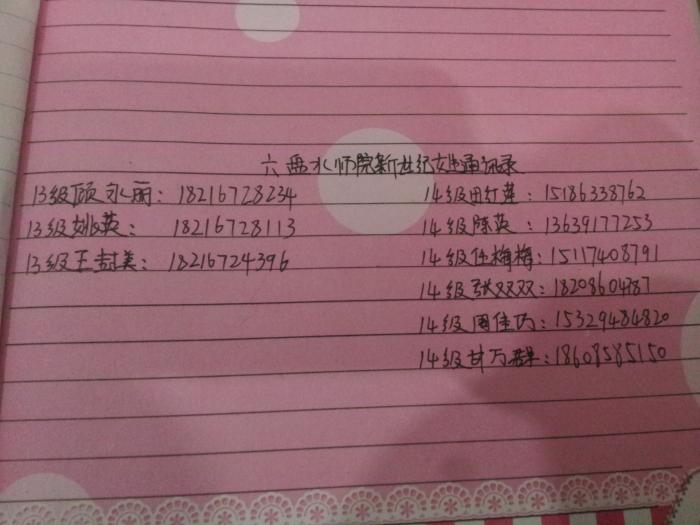 六盘水师院新世纪文通讯录
13级顾永丽：18216728234
13级姚英：18216728113
13级王封美：18216724396
14级田红莲：15186338762
14级陈英：13639177253
14级任梅梅：15117408791
14级张双双：18208604787
14级周佳巧：15329484820
14级甘万群：18608585150